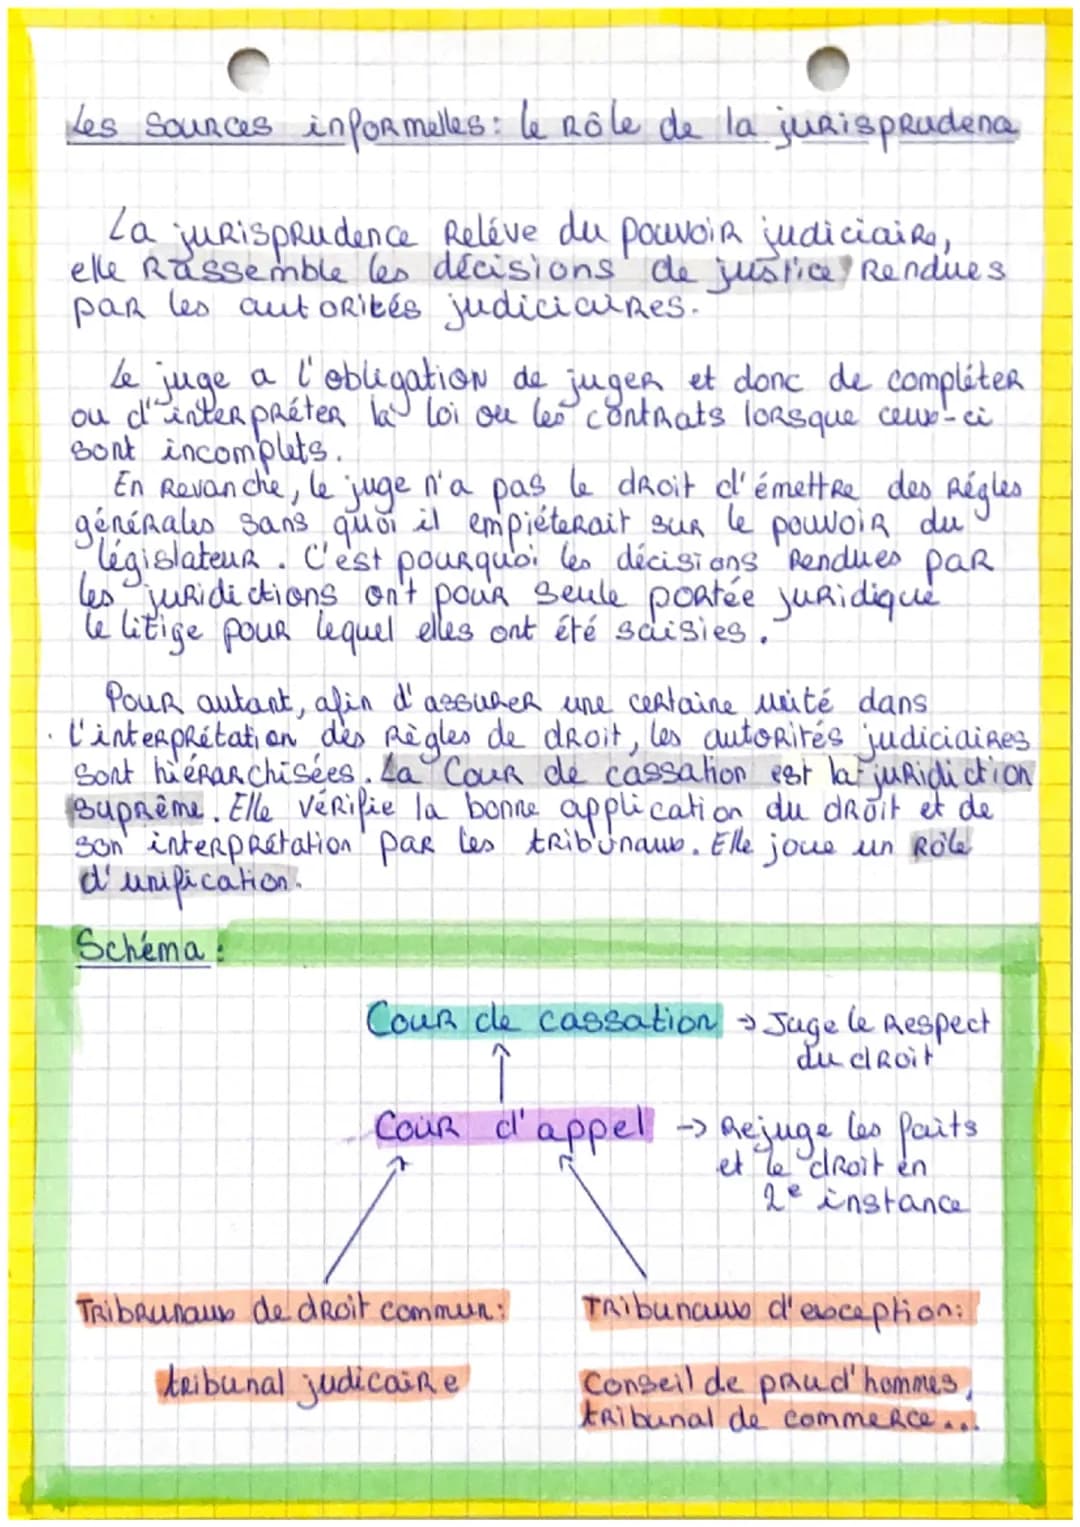 Les sources informelles: le rôle de la jurisprudence
La jurisprudence Reléve du pouvoir judiciaire,
elle Rassemble les décisions de justice Rendues
par les autorités judiciaires.
Le juge a l'obligation de juger et donc de compléter
ou d'interpréter la loi ou les contrats lorsque ceux-ci
sont incomplets.
En Revanche, le juge n'a pas le droit d'émettre des Régles
générales sans quoi il empiéterait sur le pouvoir du
législateur. C'est pourquoi les décisions Rendues par
les juridictions ont pour seule portée juridique
le litige pour lequel elles ont été saisies.
Pour autant, afin d'assurer une certaine unité dans
l'interprétation des Règles de droit, les autorités judiciaires
sont hiérarchisées. La Cour de cassation est la juridiction
suprême. Elle vérifie la bonne application du droit et de
son interprétation par les tribunaux. Elle joue un Rôle
d'unification.
Schéma :
Cour de cassation → Juge le Respect
du droit
Cour d'appel → Rejuge les faits
et le droit en
2e instance
Tribrunaux de droit commun:
Tribunaux d'exception:
tribunal judicaire
Conseil de prud'hommes,
tribunal de commerce...